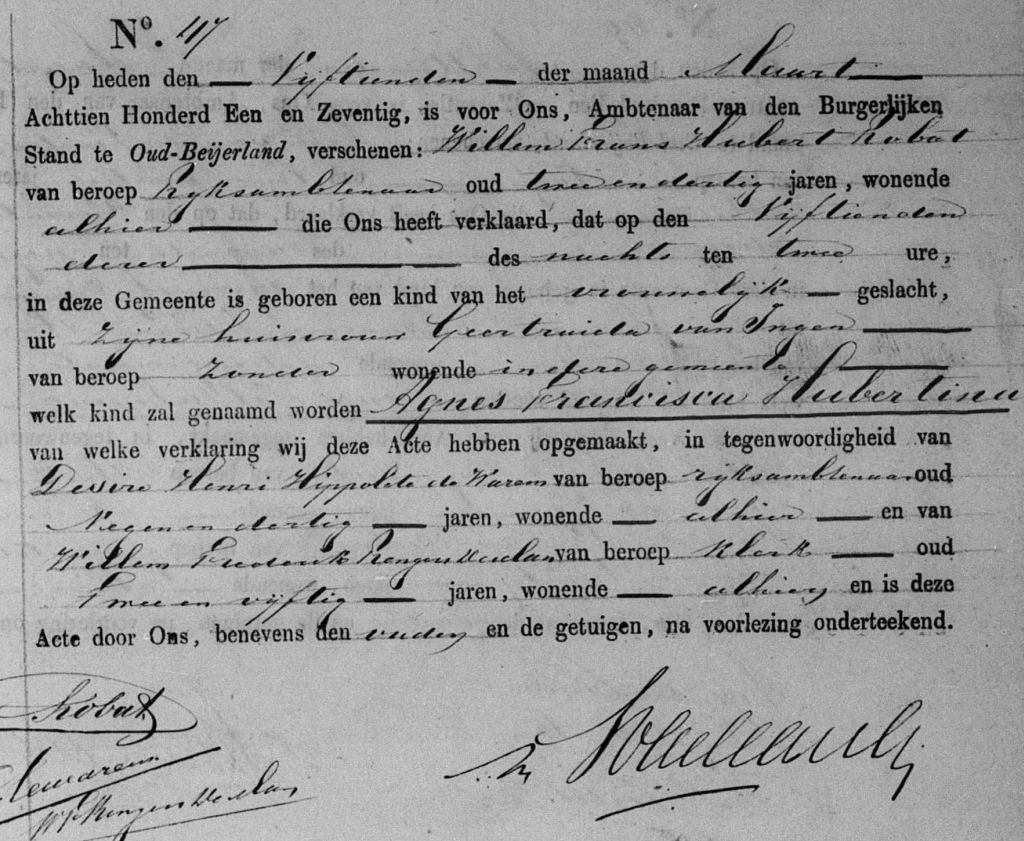 Nº. 47
Op heden den Vijftienden der maand Maart
Achttien Honderd Een en Zeventig, is voor Ons, Ambtenaar van den Burgerlijken
Stand te Oud-Beijerland, verschenen: Willem Frans Hubert Kobat
van beroep Rijksambtenaar oud twee en dertig jaren, wonende
alhier die Ons heeft verklaard, dat op den Vijftienden
dezer des nachts ten twee ure,
in deze Gemeente is geboren een kind van het vrouwelijk geslacht,
uit Zijne huisvrouw Geertruida van Ingen
van beroep Zonder wonende in deze gemeente
welk kind zal genaamd worden Agnes Francisca Hubertina
van welke verklaring wij deze Acte hebben opgemaakt, in tegenwoordigheid van
Desire Henri Hippolite de Warem van beroep rijksambtenaar oud
Negen en dertig jaren, wonende alhier en van
Willem Frederik van beroep Klerk oud
Twee en vijftig jaren, wonende alhier en is deze
Acte door Ons, benevens den vader en de getuigen, na voorlezing onderteekend.
Kobat